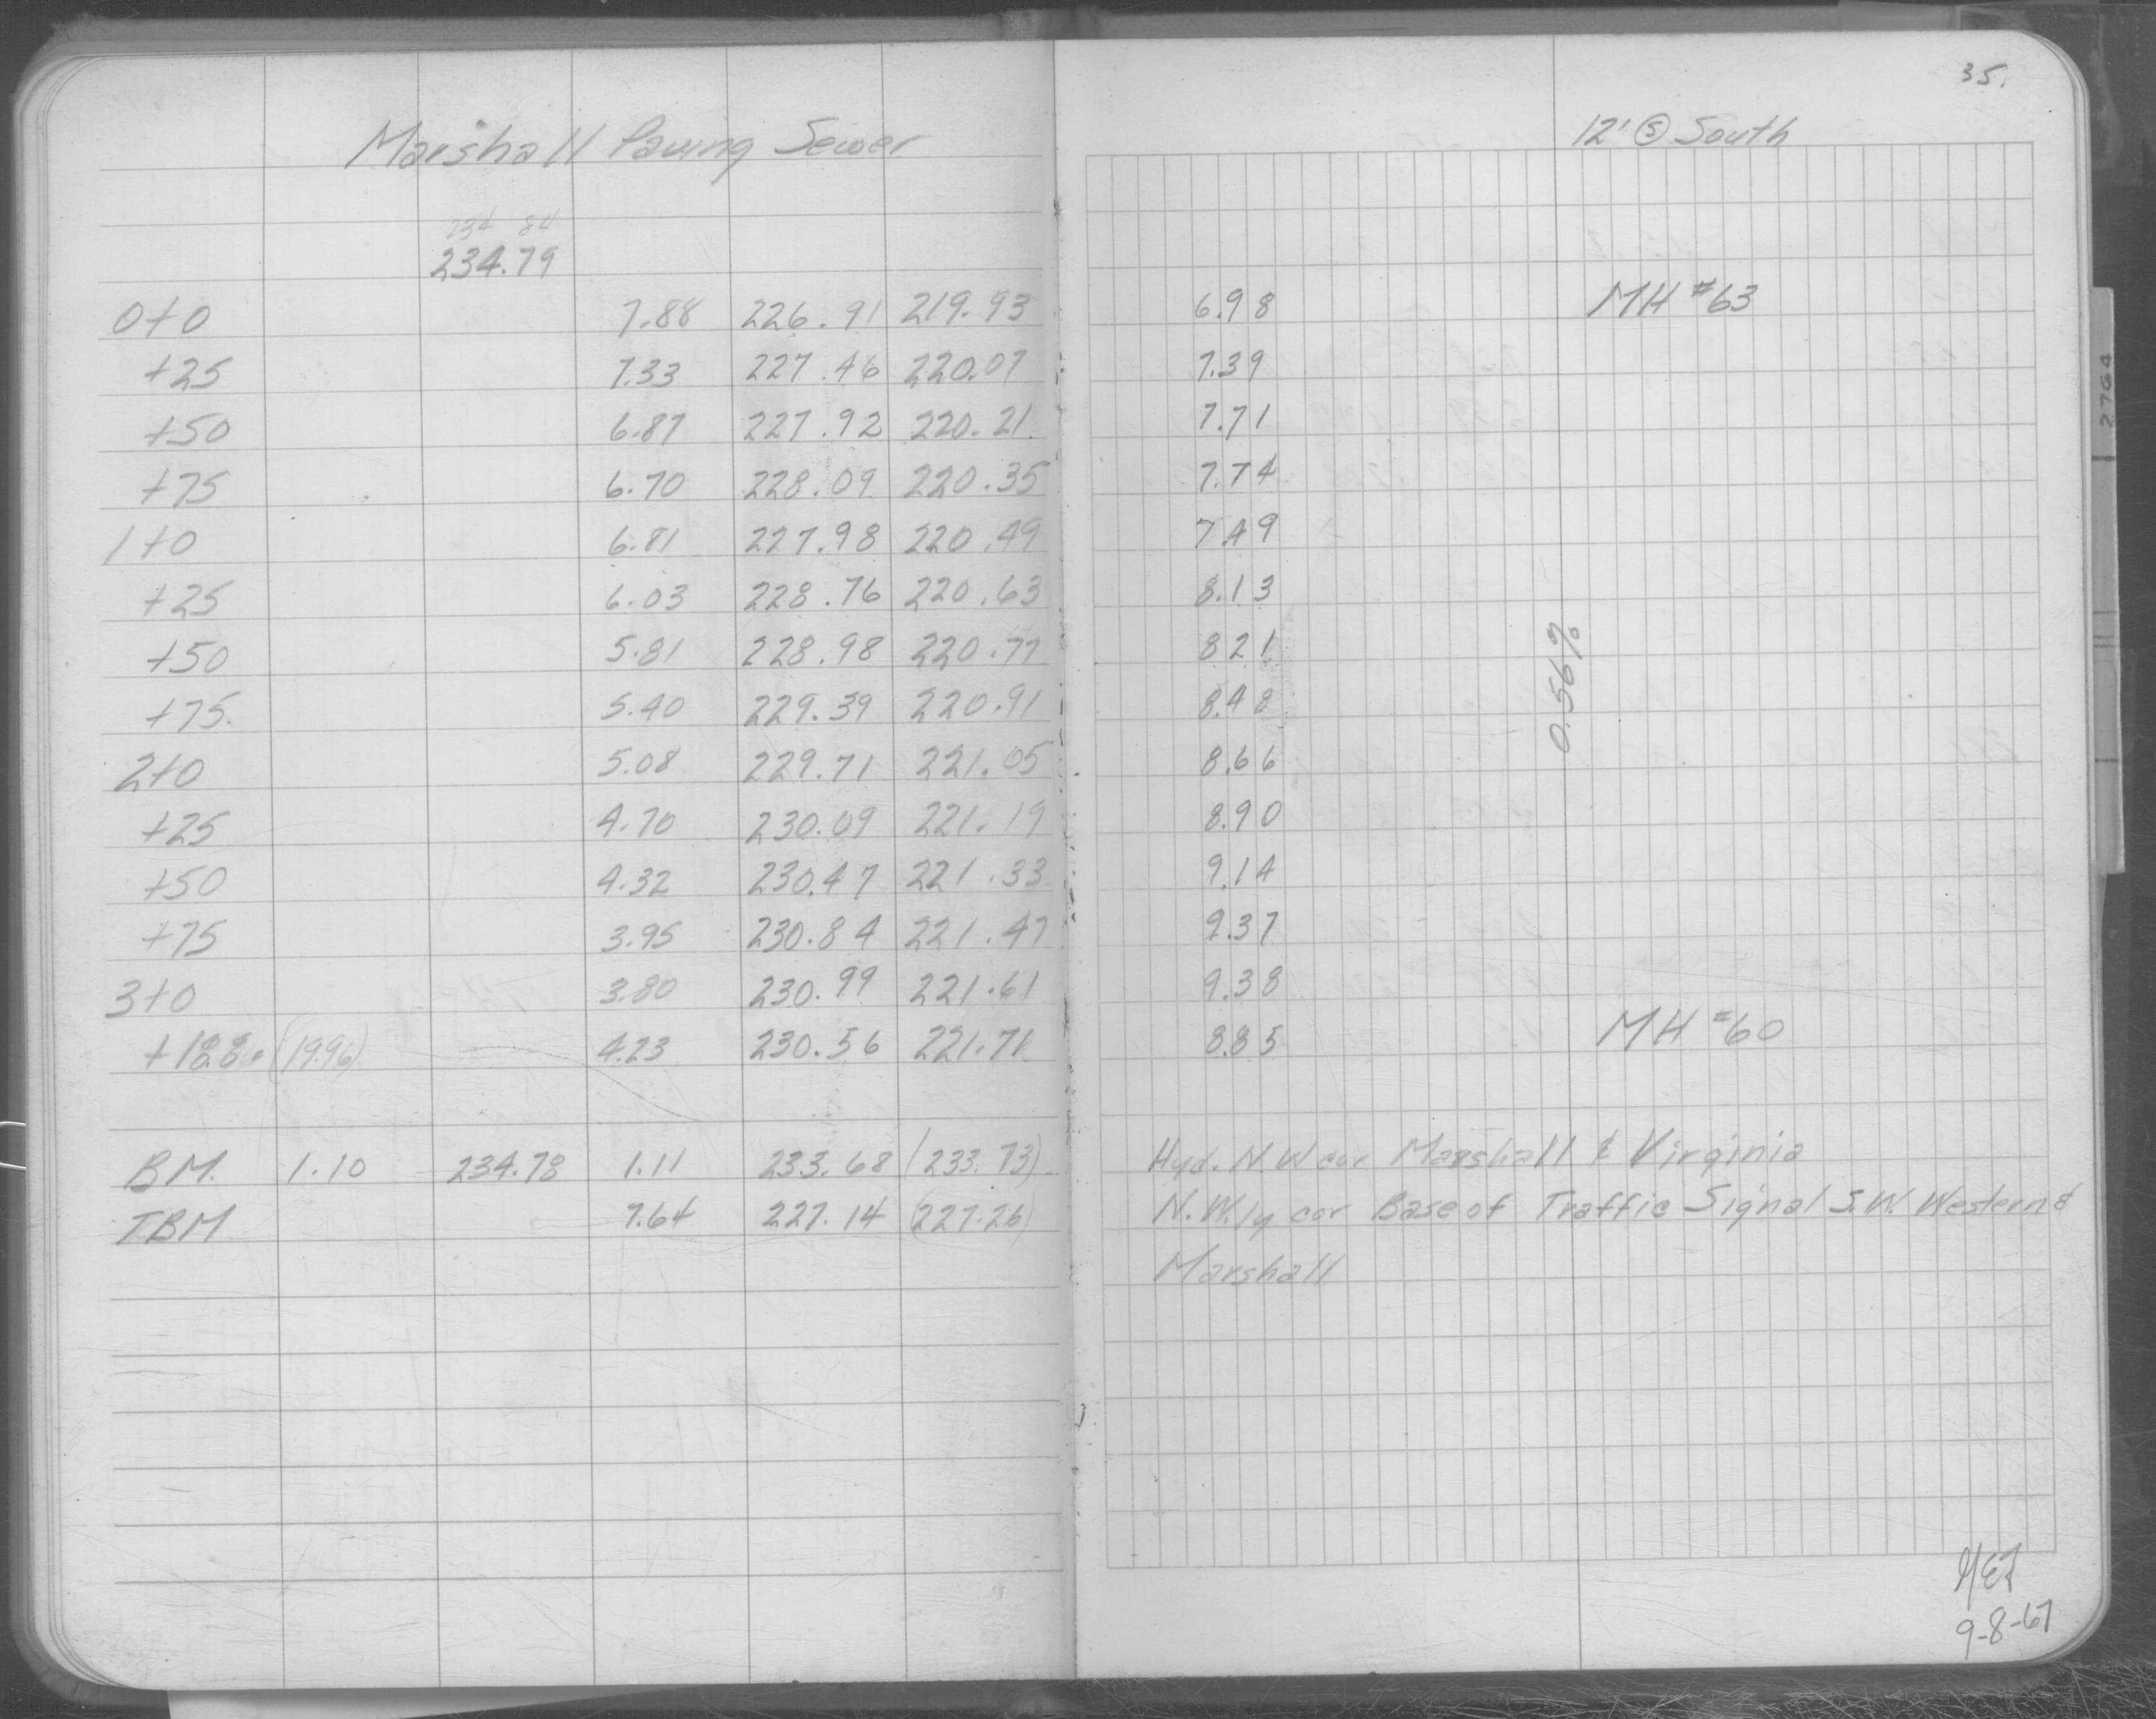 35.
Marshall Paving Sewer
12' Ⓢ South
234 84
234.79
0+0 7.88 226.91 219.93 6.98 MH #63
+25 7.33 227.46 220.07 7.39
+50 6.87 227.92 220.21 7.71
+75 6.70 228.09 220.35 7.74
1+0 6.81 227.98 220.49 7.49
+25 6.03 228.76 220.63 8.13
+50 5.81 228.98 220.77 8.21
+75 5.40 229.39 220.91 8.48
0.56%
2+0 5.08 229.71 221.05 8.66
+25 4.70 230.09 221.19 8.90
+50 4.32 230.47 221.33 9.14
+75 3.95 230.84 221.47 9.37
3+0 3.80 230.99 221.61 9.38
(19.96) 4.23 230.56 221.71 8.85 MH #60
BM. 1.10 234.78 1.11 233.68 (233.73) Hyd. N.W cor Marshall & Virginia
TBM 7.64 227.14 (227.26) N.W.ly cor Base of Traffic Signal S.W. Western &
Marshall
9-8-67
2764